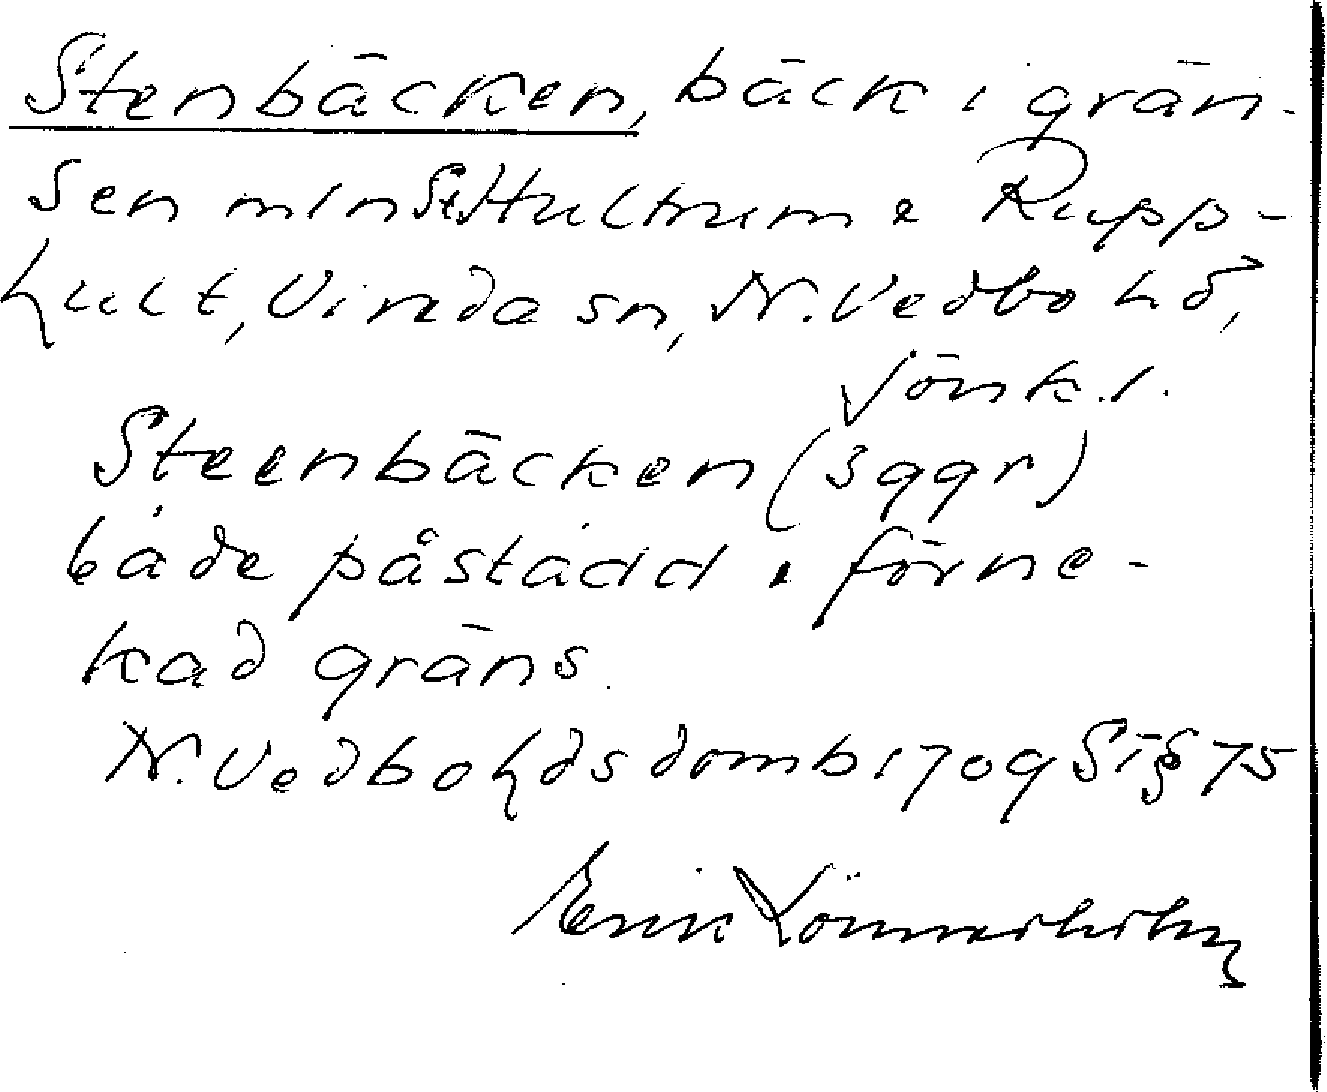 Stenbäcken, bäck i grän-
sen mln St. Hultrum & Rupp-
hult, Vireda sn, N. Vedbo hd,
Jönk. l.
Steenbäcken (3 ggr)
både påstådd & förne-
kad gräns.
N. Vedbo hds domb 1709 St § 75
Erik Lönnerholm